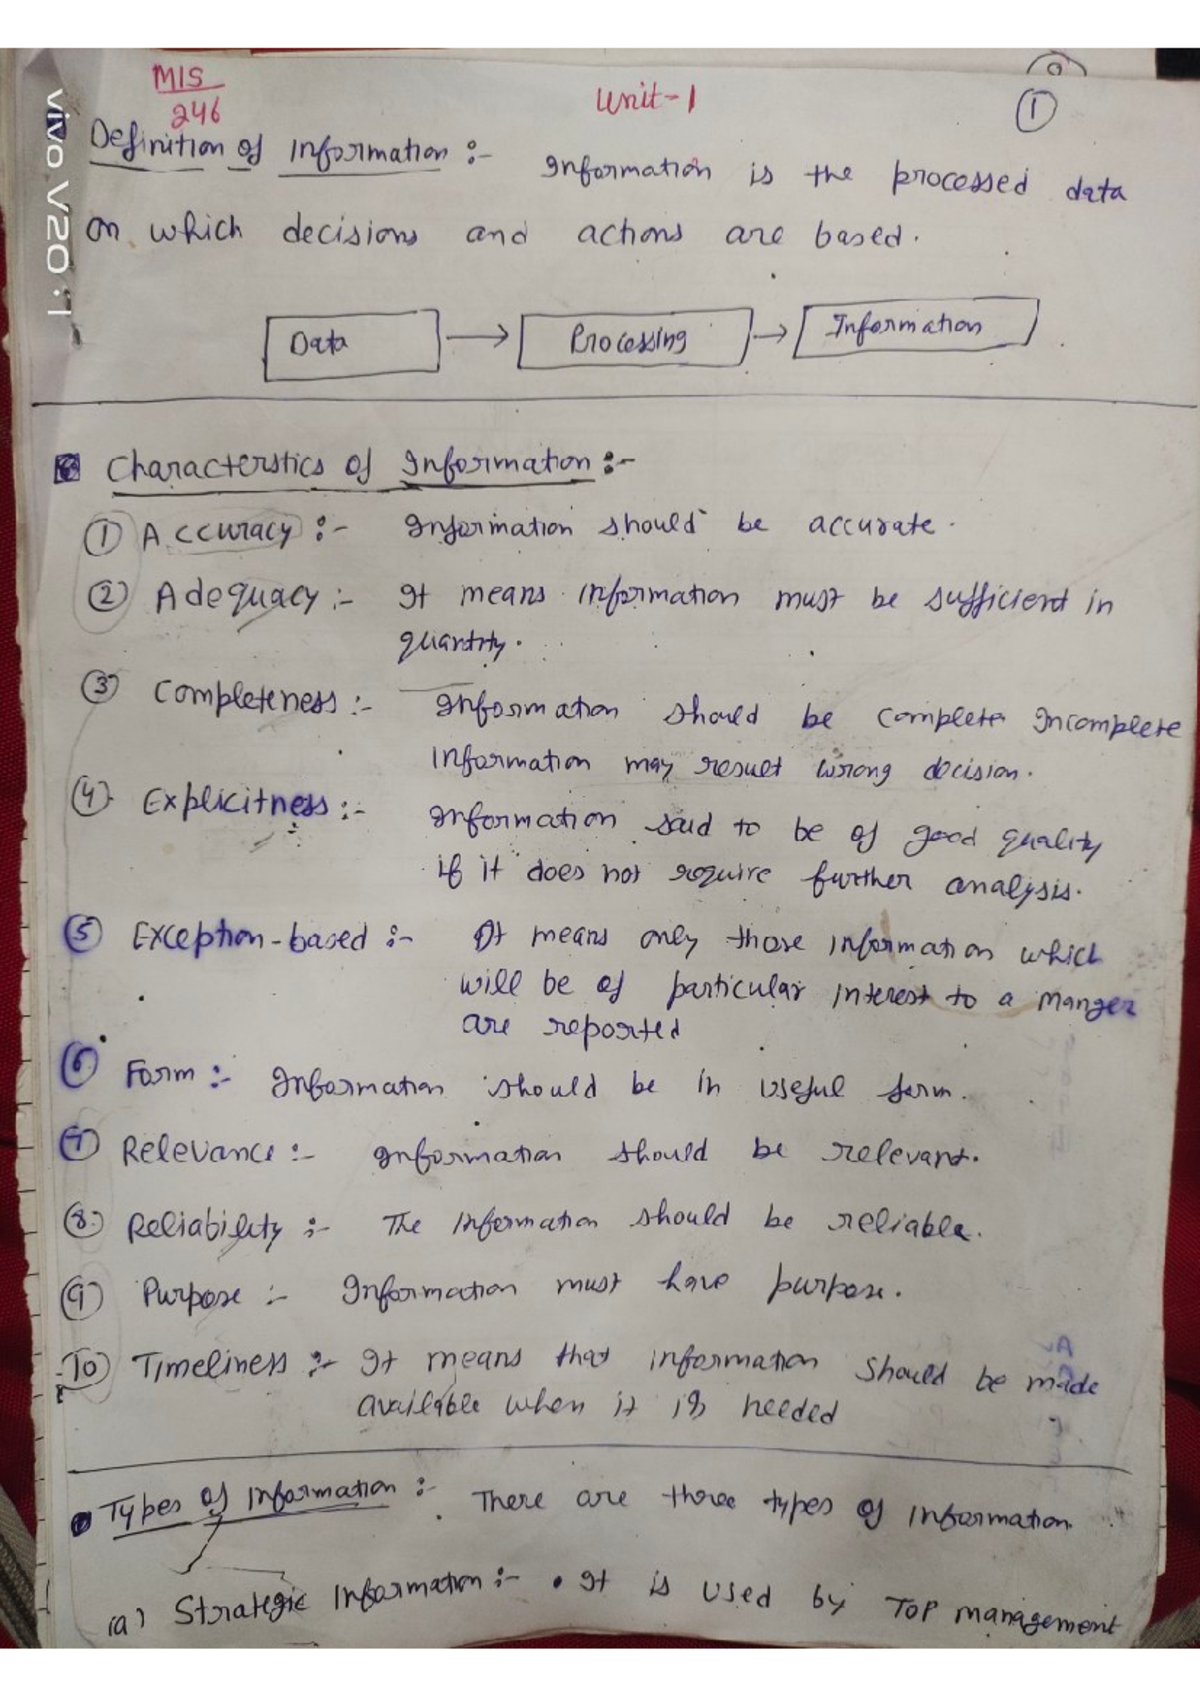 MIS
246
Unit-1
1
Definition of Information :- Information is the processed data
on which decisions and actions are based.
Data → Processing → Information
Characterstics of Information :-
① Accuracy :- Information should be accurate.
② Adequacy :- It means information must be sufficient in
quantity.
③ Completeness :- Information should be complete Incomplete
information may result wrong decision.
④ Explicitness :- Information said to be of good quality
if it does not require further analysis.
⑤ Exception-based :- It means only those information which
will be of particular interest to a manger
are reported
⑥ Form :- Information should be in useful form.
⑦ Relevance :- Information should be relevant.
⑧ Reliability :- The information should be reliable.
⑨ Purpose :- Information must have purpose.
⑩ Timeliness :- It means that information should be made
available when it is needed
Types of information :- There are three types of information.
(a) Strategic Information :- • It is used by Top management
vivo V20:1